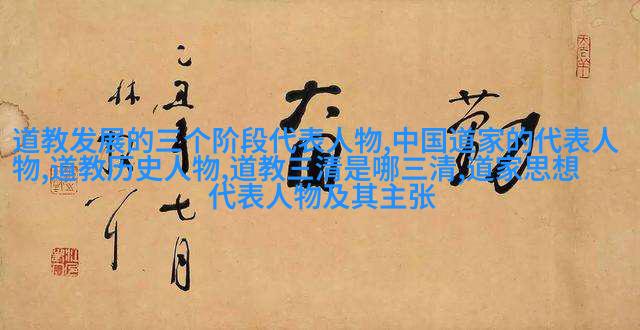 道教发展的三个阶段代表人物,中国道家的代表人
物,道教历史人物,道教三清是哪三清,道家思想
代表人物及其主张
勤奋
乙丑年七月
林